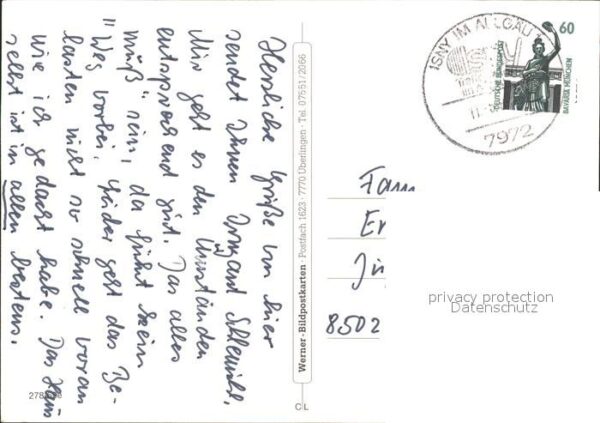 Herzliche Grüße von hier
sendet Ihnen Irmgard
Mir geht es den Umständen
entsprechend gut. Das alles
muß "sein, da führt kein
"Weg vorbei, leider geht das Be-
lasten nicht so schnell voran
wie ich gedacht habe. Das Haus
selbst ist in allem bestens.
Werner-Bildpostkarten · Postfach 1623 · 7770 Überlingen · Tel. 07551/2066
C L
ISNY IM ALLGÄU 1
7972
60
DEUTSCHE BUNDESPOST
BAVARIA MÜNCHEN
Fam
8502
privacy protection
Datenschutz